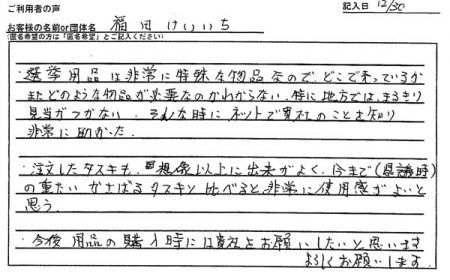 ご利用者の声
記入日 12/30
お客様の名前or団体名 福田 けいいち
(匿名希望の方は「匿名希望」とご記入ください)
・選挙用品は非常に特殊な物品なので、どこで売っているか
またどのような物品が必要なのかわからない。特に地方では、まるきり
見当がつかない。そんな時にネットで貴社のことを知り
非常に助かった。
・注文したタスキも、想像以上に出来がよく、今まで(県議時)
の重たい がさばるタスキと比べると、非常に使用感がよいと
思う。
・今後 用品の購入時には貴社とお願いしたいと思います
よろしくお願いします。